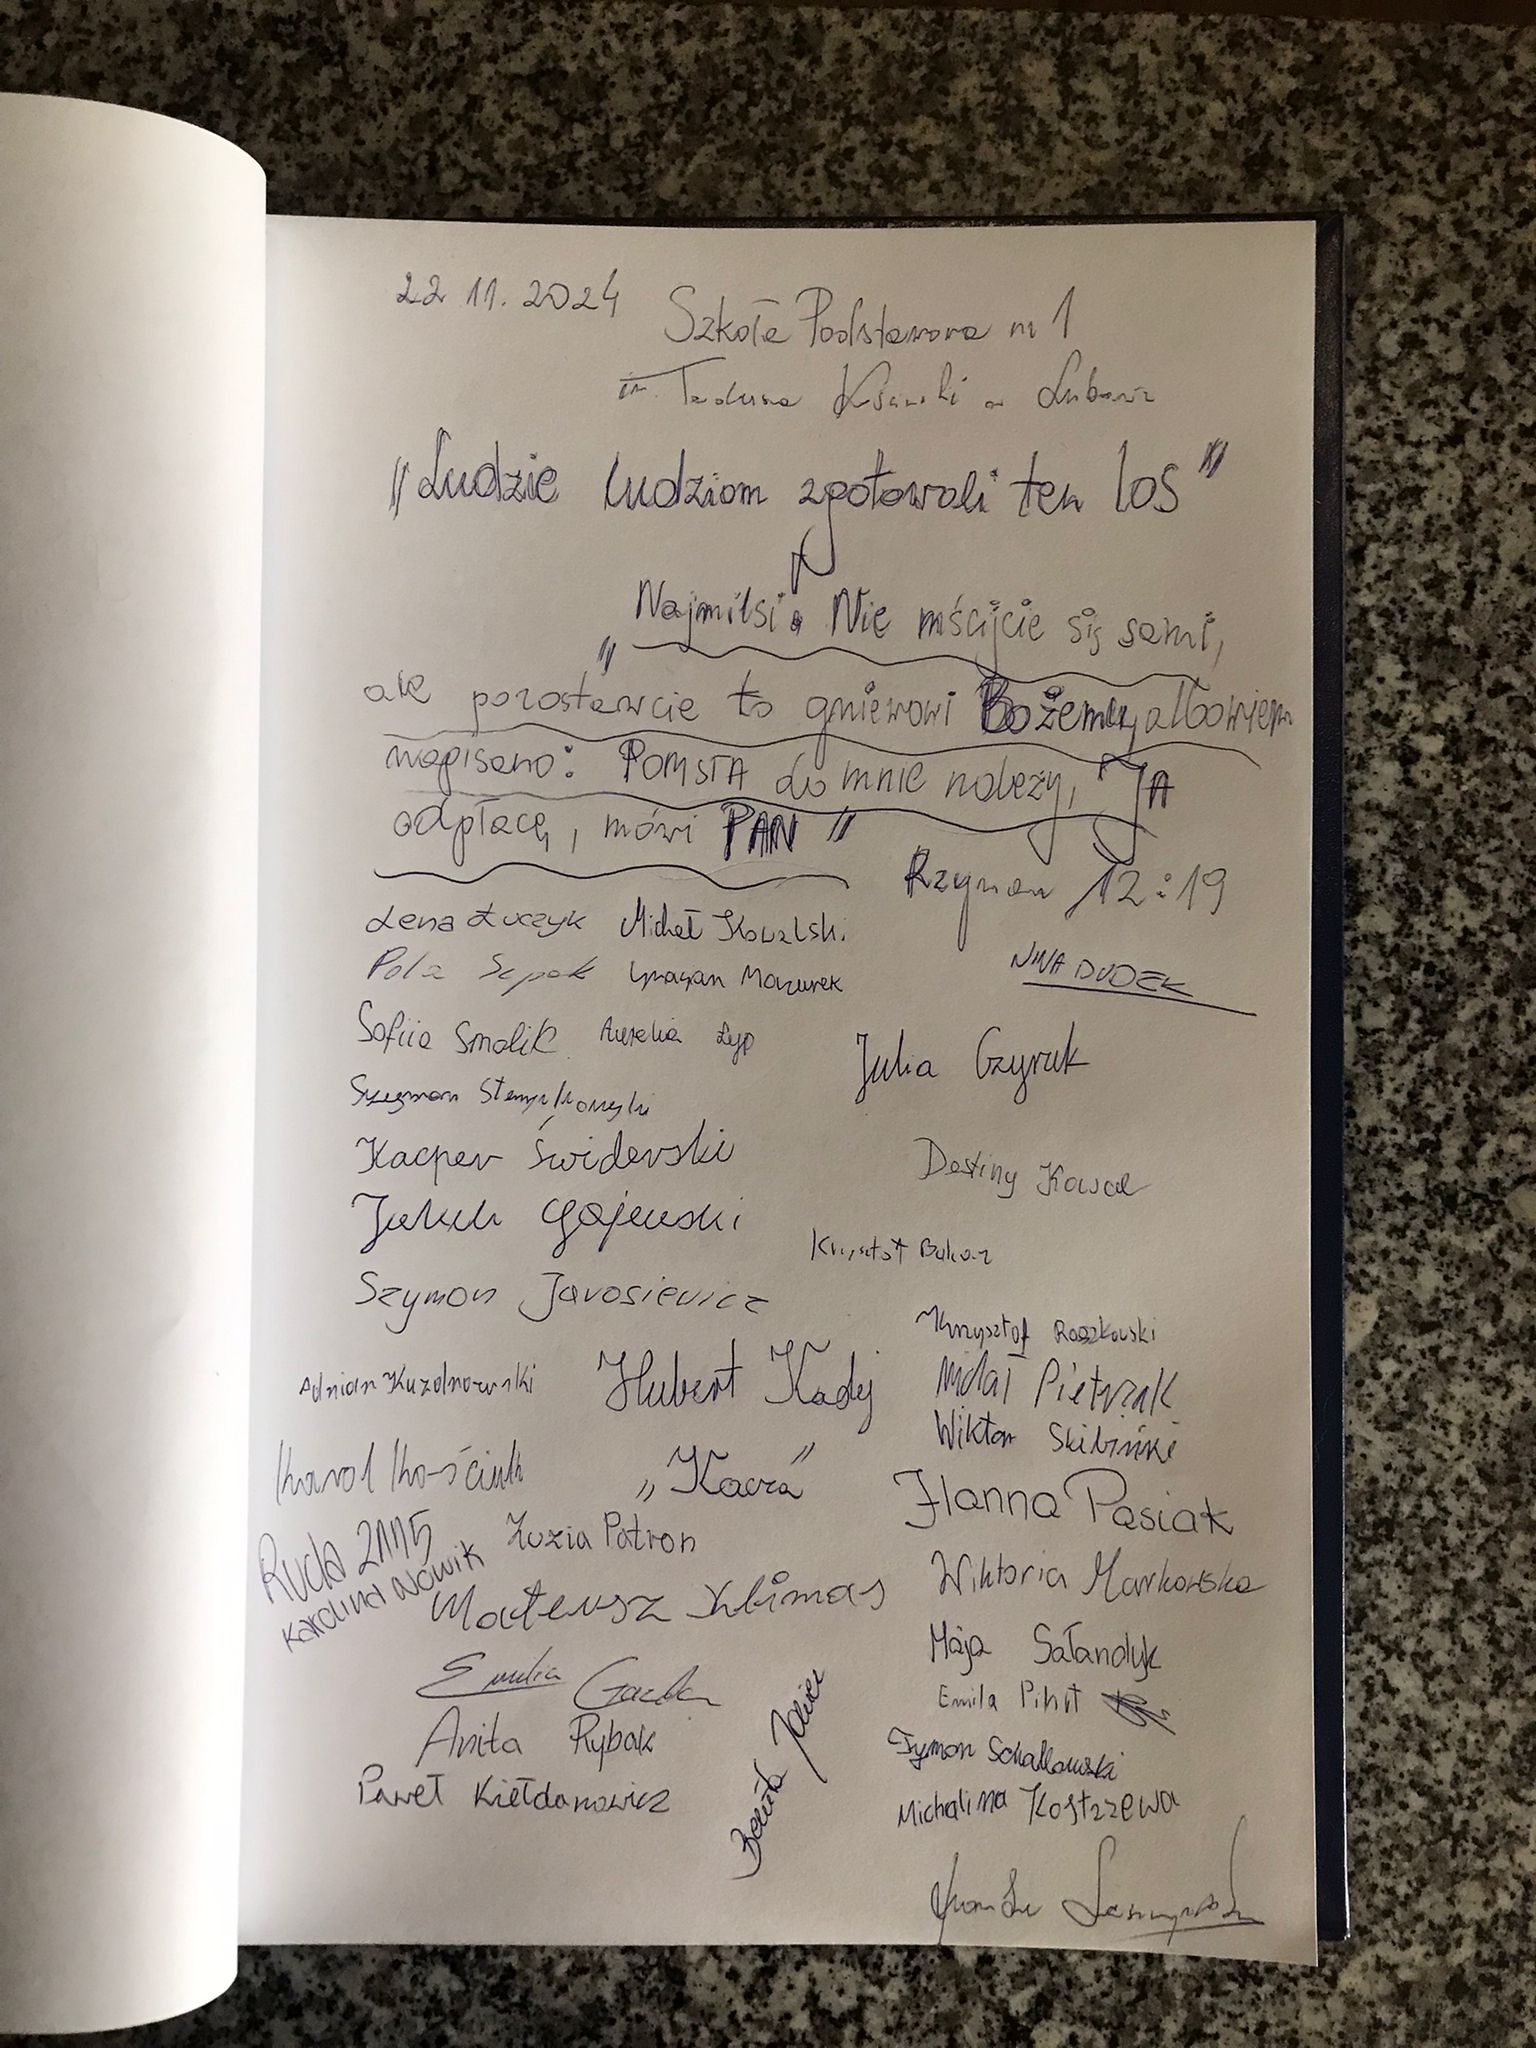 22 11. 2024
Szkoła Podstawowa nr 1
im. Tadeusza
"Ludzie ludziom zgotowali ten los"
Najmilsi! Nie mścijcie się sami,
ale pozostawcie to gniewowi Bożemu, albowiem
napisano: POMSTA do mnie należy, JA
odpłacę, mówi PAN"
Rzymian 12:19
Lena Łuczyk Michał Kowalski
Pola
Mazurek
NINA DUDEK
Sofiia Smolik Aurelia Łyp
Julia Czyruk
Szymon
Kacper Świderski
Destiny Kowal
Jakub Gajewski
Krzysztof
Szymon Jarosiewicz
Krzysztof Roszkowski
Adrian
Hubert Kadej
Michał Pietrzak
Wiktor Skibiński
Karol Kościuk
"Kacza"
Hanna Pasiak
Ruda 2115
Karolina Nowik
Zuzia Patron
Wiktoria Markowska
Mateusz Klimas
Maja Sałandyk
Emilia Gazda
Emila
Anita Rybak
Tymon
Paweł Kiełdanowicz
Michalina Kostrzewa